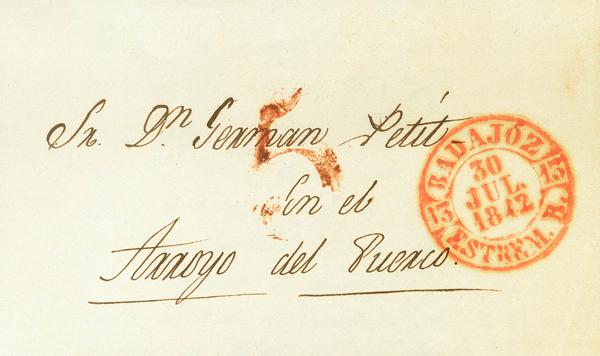 Sr. Dn. German Petit
5
En el
Arroyo del Puerco.
BADAJÓZ
13
30
JUL.
1842
13
ESTREM. B.